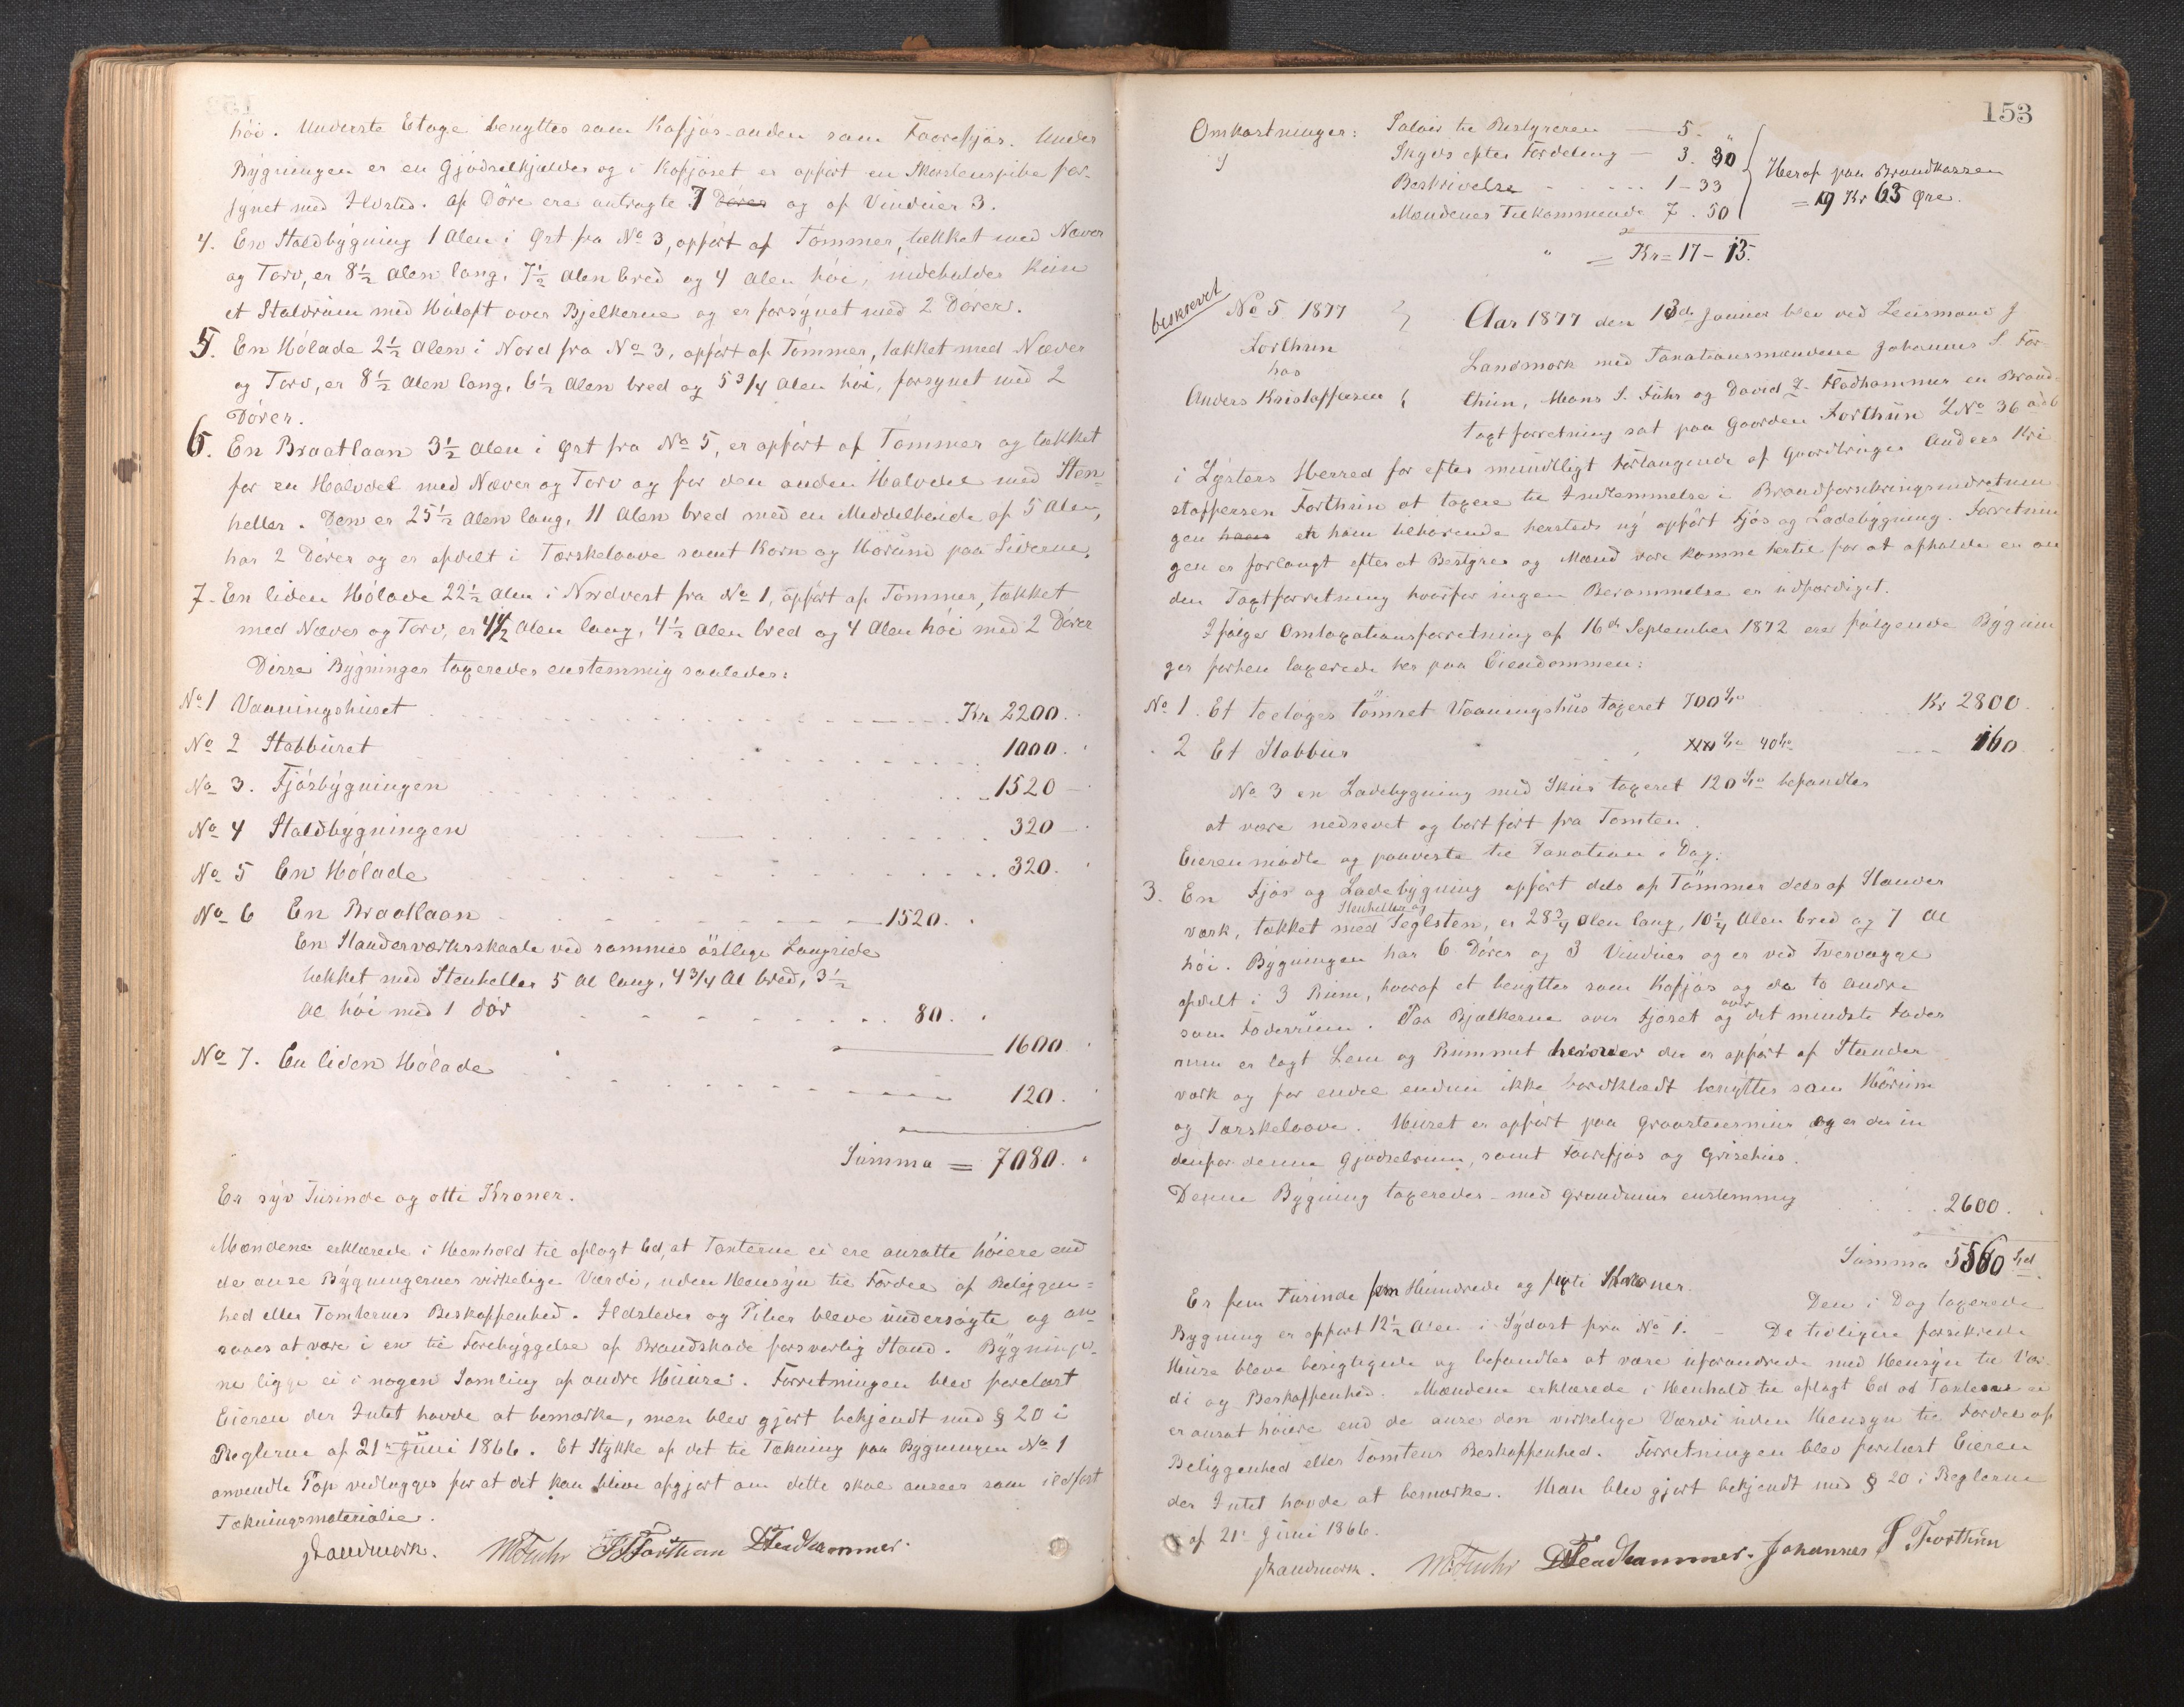 höi. Underste Etage benyttes som Kofjös-anden som Faarefjös. Under
Bygningen er en Gjödselkjelder og i Kofjöset er opfört en Skorstenspibe for-
synet med Ildsted. Af Döre ere antragte 7 Dörer og af Vinduer 3.
4. En Staldbygning 1 Alen i Øst fra No 3, opfört af Tømmer, tækket med Næver
og Torv, er 8½ Alen lang, 7½ Alen bred og 4 Alen höi, indeholder kun
et Staldrum med Höloft over Bjelkerne og er forsynet med 2 Dörer.
5. En Hölade 2½ Alen i Nord fra No 3, opfört af Tömmer, tækket med Næver
og Torv, er 8½ Alen lang, 6½ Alen bred og 5 3/4 Alen höi, forsynet med 2
Dörer.
6. En Braatlaan 3½ Alen i Øst fra No 5, er opfört af Tömmer og tækket
for en Halvdel med Næver og Torv og for den anden Halvdel med Sten-
heller. Den er 25½ Alen lang, 11 Alen bred med en Meddelhöide af 5 Alen,
har 2 Dörer og er afdelt i Tærskeloave samt Korn og Hörum paa Siderne.
7- En liden Hölade 22½ Alen i Nordvest fra No 1, opfört af Tömmer, tækket
med Næver og Torv, er 4½ Alen lang, 4½ Alen bred og 4 Alen höi med 2 Dörer
Disse Bygninger taxeredes enstemmig saaledes:
No 1 Vaaningshuset Kr 2200.
No 2 Stabburet 1000.
No 3. Fjösbygningen 1520
No 4 Staldbygningen 320
No 5 En Hölade 320.
No 6 En Braatlaan 1520.
En Standerværksskaale ved sammes östlige Langside
tækket med Stenheller 5 Al lang, 4 3/4 Al bred, 3½
Al höi med 1 Dör 80.
1600
No 7. En liden Hölade
120.
Summa = 7080.
Er syv Tusinde og otti Kroner.
Mændene erklærede i Henhold til aflagt Ed, at Taxterne ei ere ansatte höiere end
de anse Bygningernes virkelige Værdi, uden Hensyn til Fordel af Beliggen-
hed eller Tomternes Beskaffenhed. Ildsteder og Piber bleve undersögte og an-
saaes at være i en til Forebyggelse af Brandskade forsvarlig Stand. Bygninger-
ne ligge ei i nogen Samling af andre Huuse. Forretningen blev forelæst
Eieren der Intet havde at bemærke, men blev gjort bekjendt med § 20 i
Reglerne af 21de Juni 1866. Et Stykke af det til Tækning paa Bygningen No 1
anvendte Pap vedlægges for at det kan blive afgjort om dette skal ansees som ildfast
Tækningsmateriale.
JLandmark. MFuhr JSForthun DFladhammer.
153
Omkostninger: Salair til Bestyreren 5.
Skyds efter Fordeling 3. 30
Beskrivelse 1-33
Mændenes Tilkommende 7.50
Heraf paa Brandkassen
= 9 Kr 63 Øre.
= Kr= 17-13.
beskrevet
No 5 1877
Forthun
hos
Anders Kristoffersen
Aar 1877 den 13de Januar blev ved Lensmand J
Landmark med Taxationsmændene Johannes S For-
thun, Mons S. Fuhr og David J. Fladhammer en Brand-
taxtforretning sat paa Gaarden Forthun LNo 36
i Lysters Herred for efter mundtligt Forlangende af Gaardbruger Anders Kri
stoffersen Forthun at taxere til Indlemmelse i Brandforsikringsindretnin
gen hans en ham tilhörende hersteds ny opfört Fjös og Ladebygning. Forretnin
gen er forlangt efter at Bestyrer og Mænd vare komne hertil for at afholde en an
den Taxtforretning hvorfor ingen Berammelse er udfærdiget.
Ifølge Omtaxationsforretning af 16de September 1872 ere fölgende Bygnin
ger forhen taxerede her paa Eiendommen:
No 1. Et toetages tömret Vaaningshus taxeret 700 Kr 2800.
2 Et Stabbur 40 160
No 3 en Ladebygning med Skur taxeret 120 befandtes
at være nedrevet og bortfört fra Tomten.
Eieren mödte og paaviste til Taxation i Dag:
3. En Fjös og Ladebygning opfört dels af Tömmer dels af Stander
Stenheller og
værk, tækket med Teglsten, er 28 3/4 Alen lang, 10¼ Alen bred og 7 Al
höi. Bygningen har 6 Dörer og 3 Vinduer og er ved Tvervægge
afdelt i 3 Rum, hvoraf et benyttes som Kofjös og de to andre
over
som Foderrum. Paa Bjælkerne over Fjöset og det mindste Foder
rum er lagt Lem og Rummet herover der er opfört af Stander
værk og for endel endnu ikke bordklædt benyttes som Hörum
og Tærskeloave. Huset er opfört paa Graastensmur og er der in
denfor denne Gjödselrum, samt Faarefjös og Grisehus.
Denne Bygning taxeredes med Grundmur enstemmig
2600.
Summa 5560
Er fem Tusinde fem Hundrede og sexti Kroner. Den i Dag taxerede
Bygning er opfört 12½ Alen i Sydost fra No 1. - De tidligere forsikrede
Huse bleve besigtigede og befandtes at være uforandrede med Hensyn til Vær
di og Beskaffenhed. Mændene erklærede i Henhold til aflagt Ed at Taxten ei
er ansat höiere end de anse den virkelige Værdi uden Hensyn til Fordel af
Beliggenhed eller Tomtens Beskaffenhed. Forretningen blev forelæst Eieren
der Intet havde at bemærke. Han blev gjort bekjendt med § 20 i Reglerne
af 21. Juni 1866.
JLandmark. MFuhr DFladhammer. Johannes S Forthun